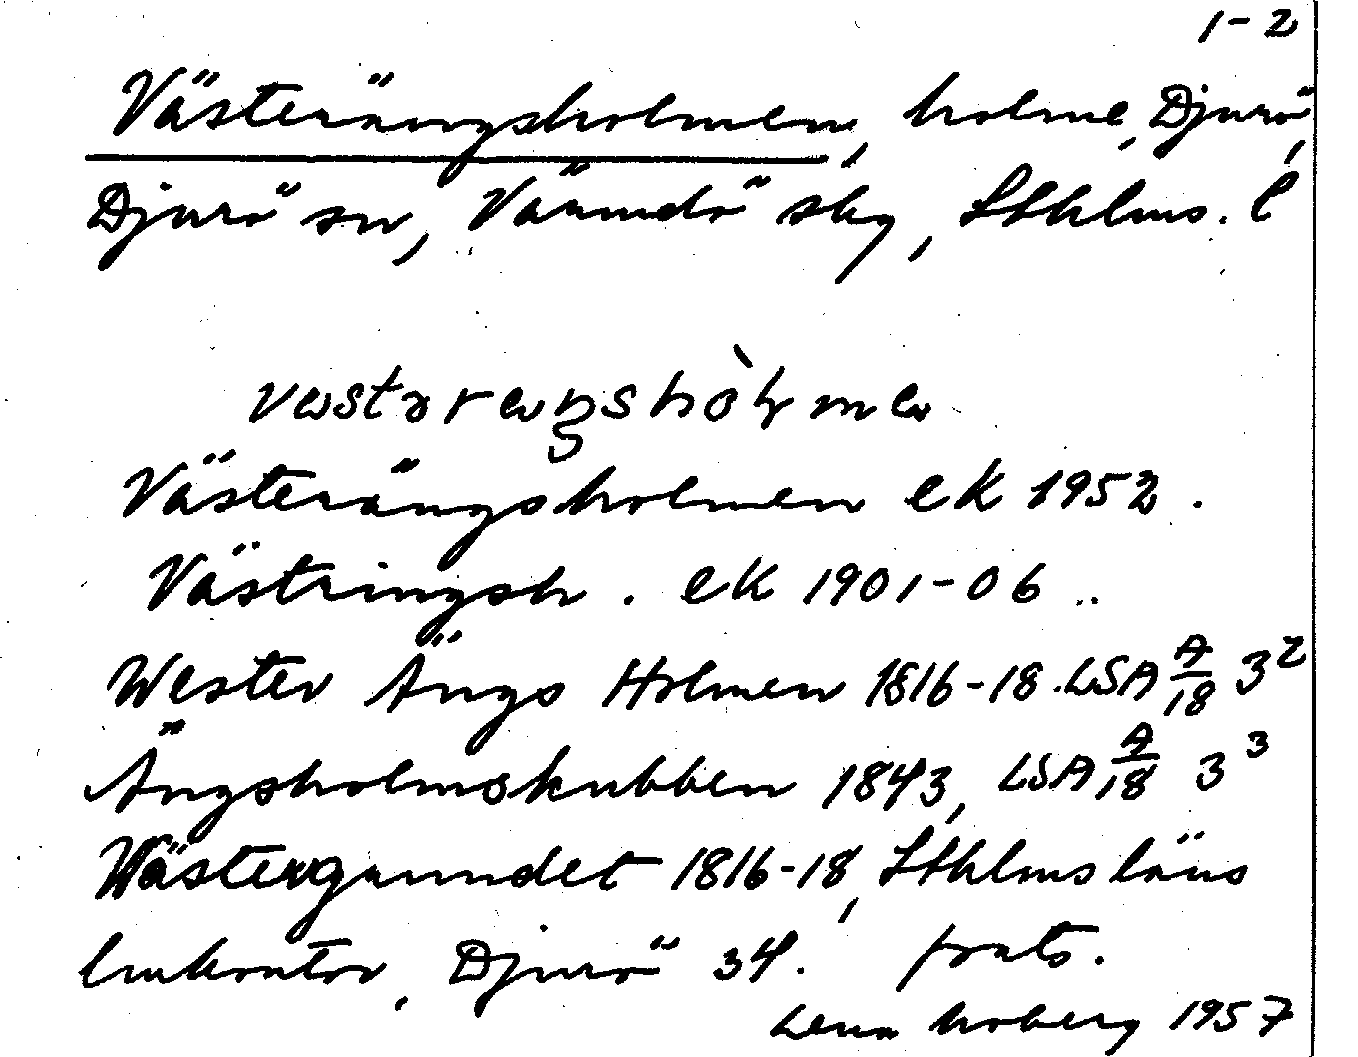 1-2
Västerängsholmen, holme, Djurö,
Djurö sn, Värmdö skg, Sthlms. l
Västerängsholmen ek 1952.
Västringsh. ek 1901-06..
Wester Ängs Holmen 1816-18. LSA A/18 3²
Ängsholmskubben 1843, LSA A/18 3³
Wästergrundet 1816-18, Sthlms läns
lmkontor, Djurö 34. forts.
Lena Moberg 1957